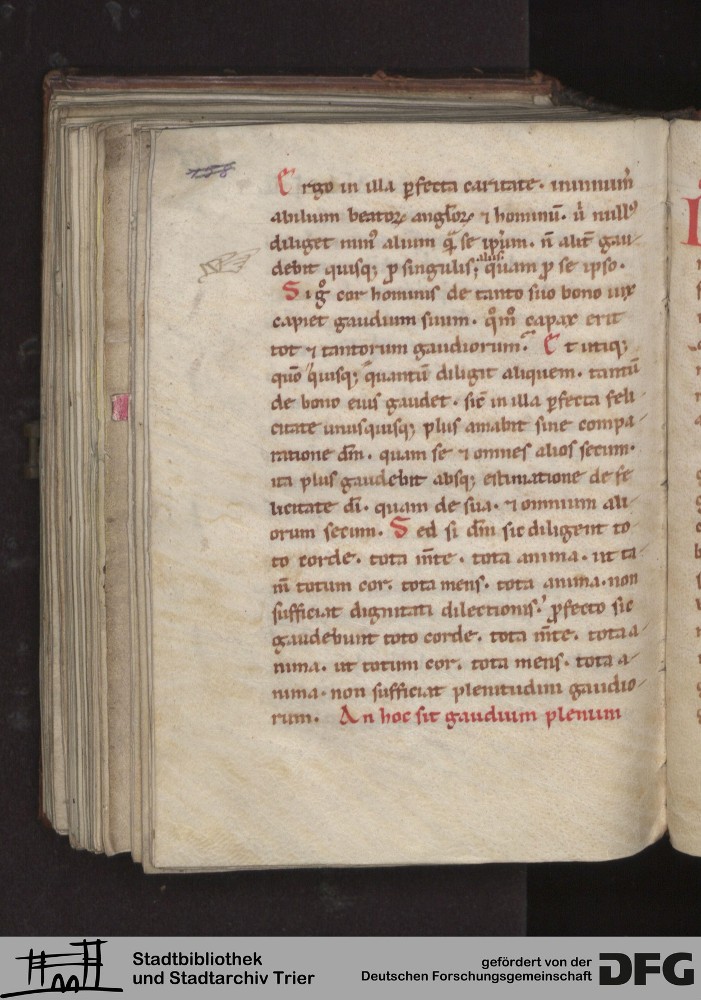 Ergo in illa ꝑfecta caritate. innum̄
abilium beatoꝝ angl̄oꝝ ⁊ hominū. n̄ null᷒
diliget min᷒ alium qͣ̄ se ip̄um. n̄ alit̄ gau-
debit quisq; ꝓ singulis; quam ꝓ se ipso.
alijs
Sig̊ cor hominis de tanto suo bono uix
capiet gaudium suum. qͦmͦ capax erit
tot ⁊ tantorum gaudiorum. Et utiq;
quō quisq; quantū diligit aliquem. tantū
de bono eius gaudet. sic̄ in illa ꝑfecta feli-
citate unusquisq; plus amabit sine compa-
ratione dm̄. quam se ⁊ omnes alios secum.
ita plus gaudebit absq; estimatione de fe-
licitate dī. quam de sua. ⁊ omnium ali-
orum secum. Sed si dm̄ sic diligent to-
to corde. tota m̄te. tota anima. ut ta-
m̄ totum cor. tota mens. tota anima. non
sufficiat dignitati dilectionis. ꝓfecto sic
gaudebunt toto corde. tota m̄te. tota a-
nima. ut totum cor. tota mens. tota a-
nima. non sufficiat plenitudini gaudio-
rum. An hoc sit gaudium plenum
Stadtbibliothek
und Stadtarchiv Trier
gefördert von der
Deutschen Forschungsgemeinschaft
DFG